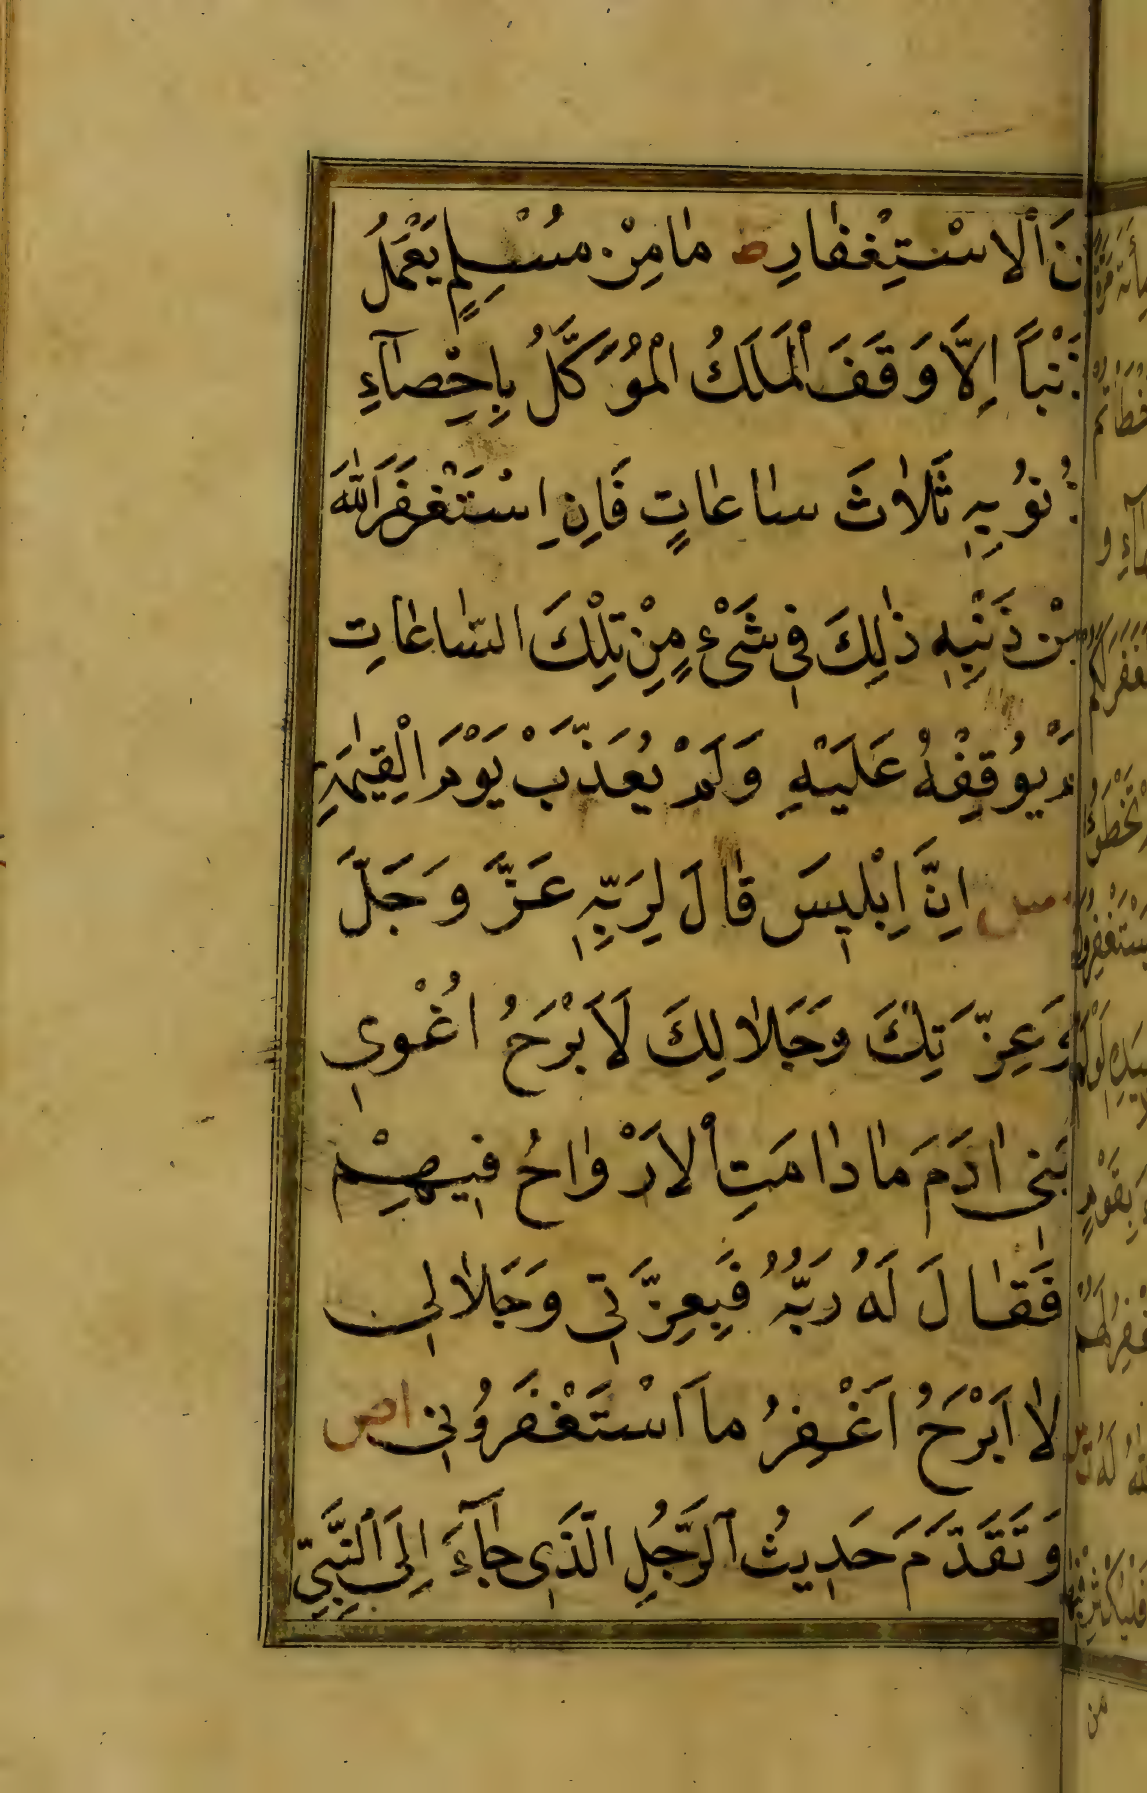 نَ ٱلاسْتِغْفٰارِ ط مٰا مِنْ مُسْلِمٍ يَعْمَلُ
ذَنْباً اِلَّا وَقَفَ ٱلْمَلَكُ الْمُوَكَّلُ بِاِحْصٰآءِ
ذُنُوُبِهِ ثَلٰاثَ سٰاعٰاتٍ فَاِنِ اسْتَغْفَرَ اللّٰهَ
مِنْ ذَنْبِهِ ذٰلِكَ فِي شَىْءٍ مِنْ تِلْكَ السّٰاعٰاتِ
لَمْ يُوقِفْهُ عَلَيْهِ وَلَمْ يُعَذَّبْ يَوْمَ الْقِيٰمَةِ
مس اِنَّ اِبْلِيسَ قٰالَ لِرَبِّهِ عَزَّ وَجَلَّ
وَعِزَّتِكَ وَجَلٰالِكَ لَا اَبْرَحُ اُغْوِي
بَنِي اٰدَمَ مٰا دٰامَتِ ٱلْاَرْوٰاحُ فِيهِمْ
فَقٰالَ لَهُ رَبُّهُ فَبِعِزَّتِي وَجَلٰالِي
لٰا اَبْرَحُ اَغْفِرُ مَا اَسْتَغْفَرُونِي اص
وَتَقَدَّمَ حَدِيثُ ٱلرَّجُلِ الَّذِي جٰآءَ اِلَى ٱلنَّبِيِّ